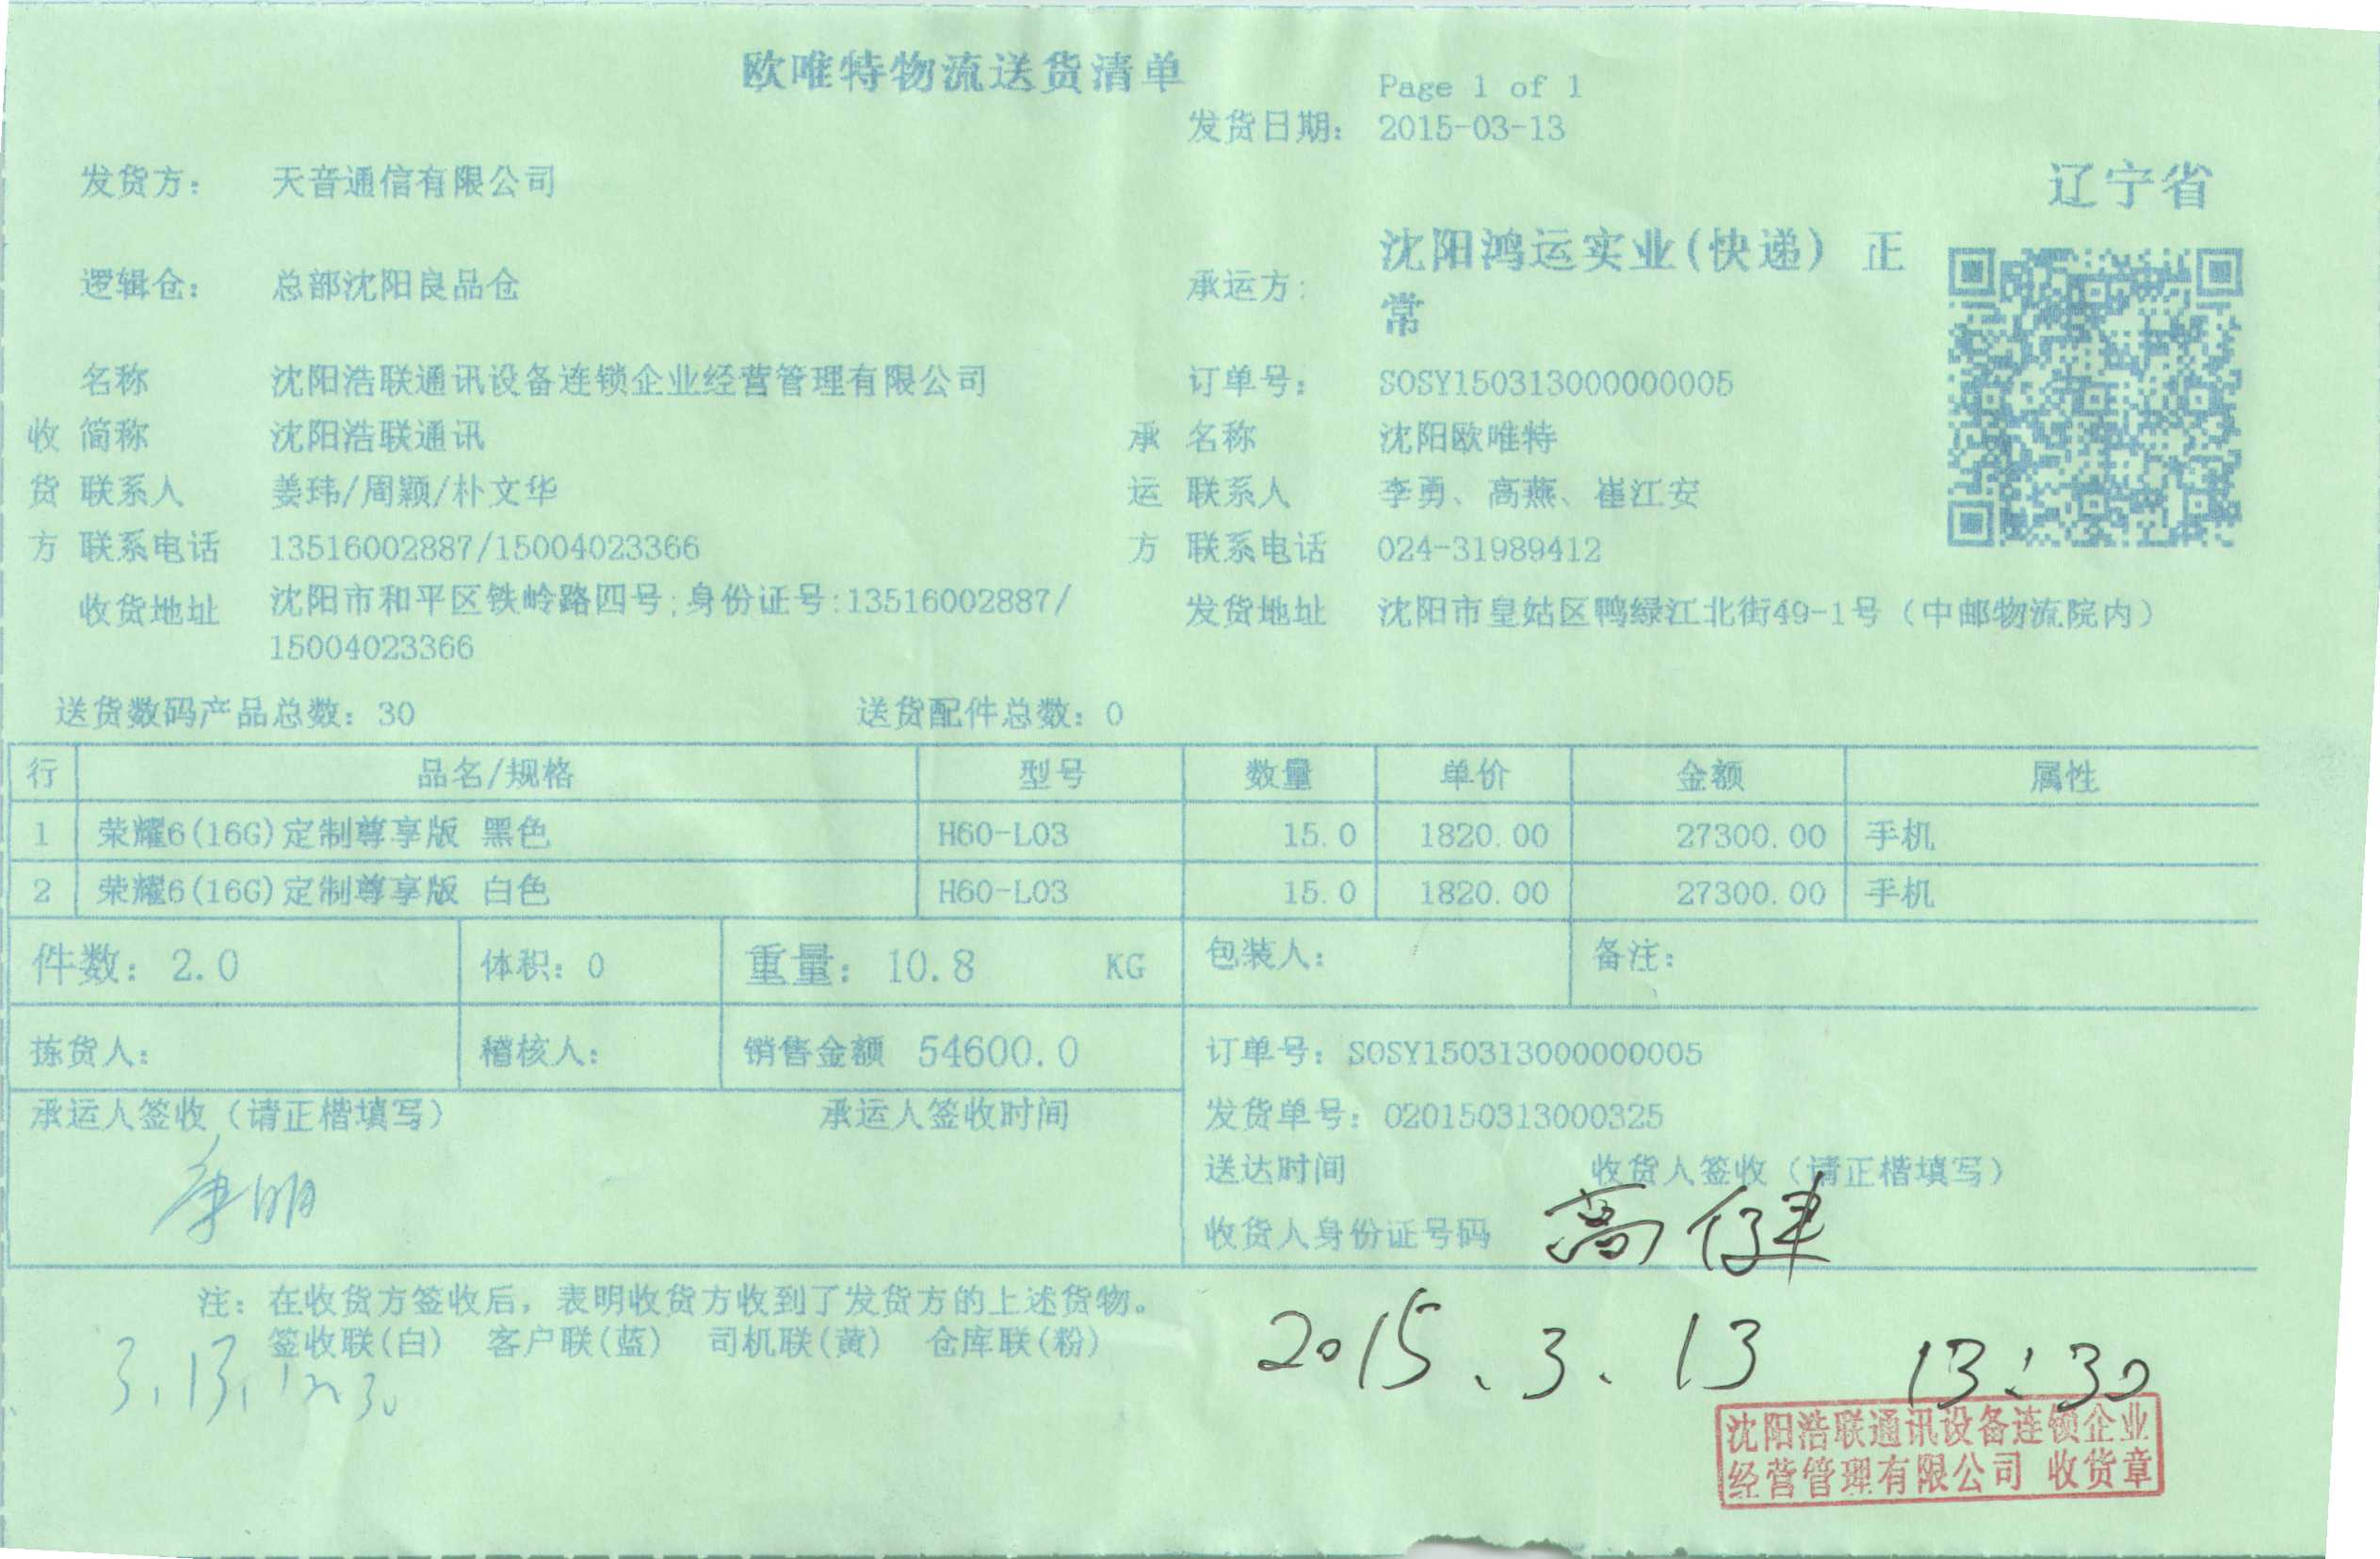 欧唯特物流送货清单
Page 1 of 1
发货日期: 2015-03-13
发货方: 天音通信有限公司
辽宁省
逻辑仓: 总部沈阳良品仓
承运方: 沈阳鸿运实业(快递) 正
常
名称 沈阳浩联通讯设备连锁企业经营管理有限公司 订单号: SOSY150313000000005
收 简称 沈阳浩联通讯 承 名称 沈阳欧唯特
货 联系人 姜玮/周颖/朴文华 运 联系人 李勇、高燕、崔江安
方 联系电话 13516002887/15004023366 方 联系电话 024-31989412
收货地址 沈阳市和平区铁岭路四号;身份证号:13516002887/
15004023366
发货地址 沈阳市皇姑区鸭绿江北街49-1号（中邮物流院内）
送货数码产品总数: 30 送货配件总数: 0
行 品名/规格 型号 数量 单价 金额 属性
1 荣耀6(16G)定制尊享版 黑色 H60-L03 15.0 1820.00 27300.00 手机
2 荣耀6(16G)定制尊享版 白色 H60-L03 15.0 1820.00 27300.00 手机
件数: 2.0 体积: 0 重量: 10.8 KG 包装人: 备注:
拣货人: 稽核人: 销售金额 54600.0 订单号: SOSY150313000000005
承运人签收（请正楷填写） 承运人签收时间 发货单号: 020150313000325
送达时间 收货人签收（请正楷填写）
收货人身份证号码 高健
注: 在收货方签收后，表明收货方收到了发货方的上述货物。
签收联(白) 客户联(蓝) 司机联(黄) 仓库联(粉)
2015.3.13 13:30
3.13.
沈阳浩联通讯设备连锁企业
经营管理有限公司 收货章